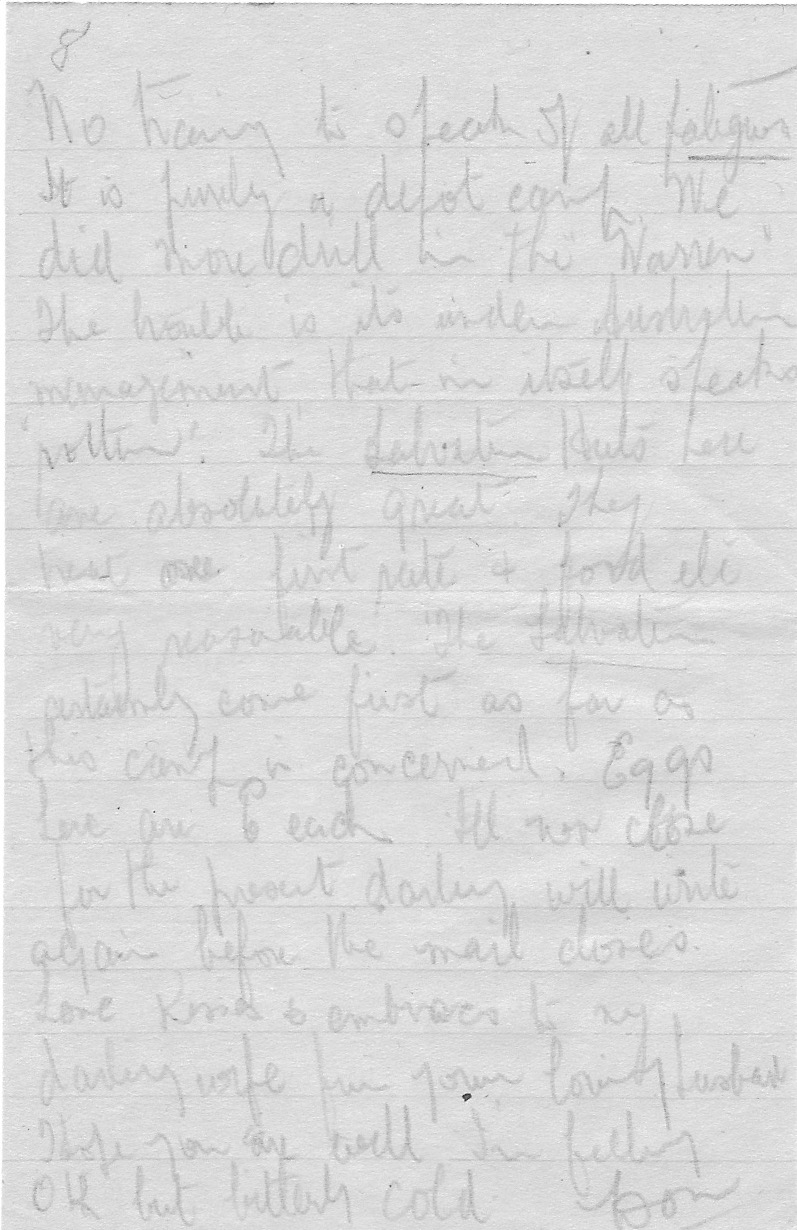 8
No traing to speak of all fatigues
It is purely a depot camp. We
did more drill in the 'Warren'
The trouble is it's under Australian
management, that in itself speaks
'rotten'. The Salvation Huts here
are absolutely great. They
treat one first rate & food etc
very reasonable. The Salvation
certainly come first as far as
this camp is concerned. Eggs
here are 6 each I'll now close
for the present darling will write
again before the mail closes.
Love Kisses & embraces to my
darling wife from your loving husband
Hope you are well I'm feeling
OK but bitterly cold Don